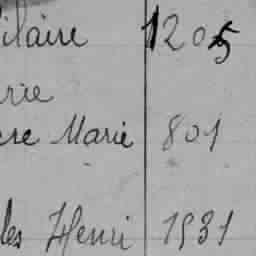 ilaire 1205
rie
re Marie 801
les Henri 1931